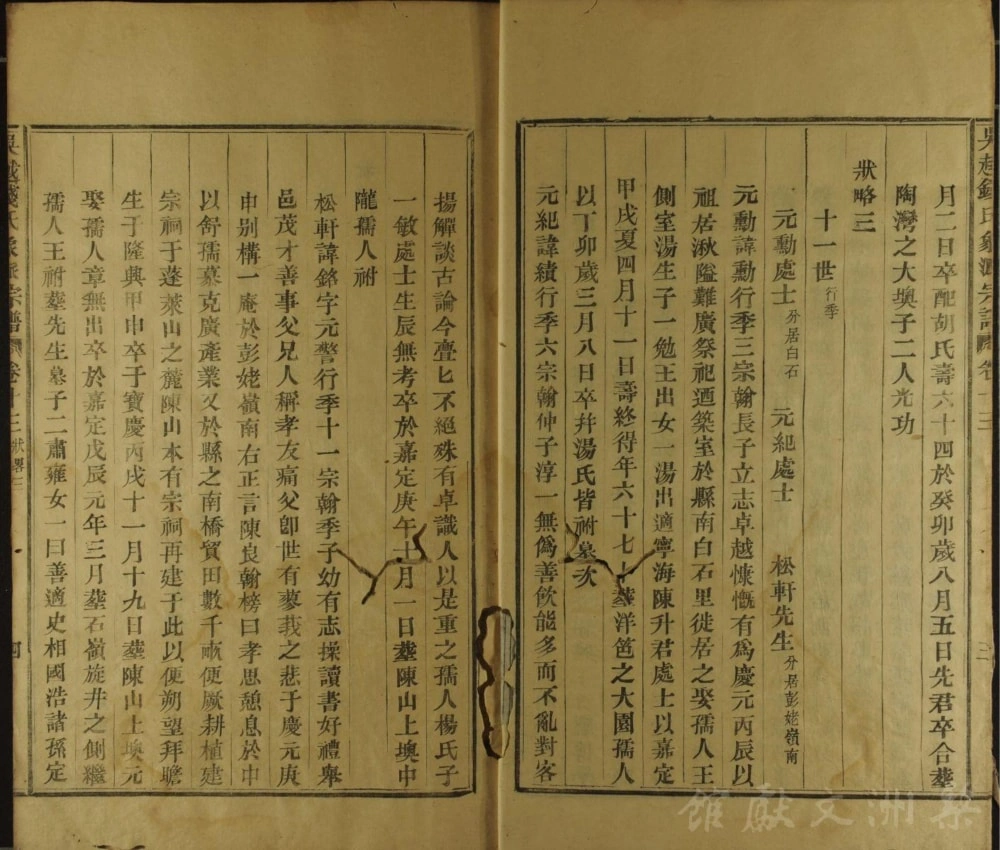 月二日卒配胡氏壽六十四於癸卯歲八月五日先君卒合塟
陶灣之大墺子二人光功
狀略三
十一世行季
元勳處士分居白石 元紀處士 松軒先生分居彭姥嶺南
元勳諱勳行季三宗翰長子立志卓越慷慨有爲慶元丙辰以
祖居湫隘難廣祭祀迺築室於縣南白石里徙居之娶孺人王
側室湯生子一勉王出女一湯出適寧海陳升君處士以嘉定
甲戌夏四月十一日壽終得年六十七塟洋笆之大園孺人
以丁卯歲三月八日卒并湯氏皆祔墓次
元紀諱績行季六宗翰仲子淳一無爲善飲能多而不亂對客
揚觶談古論今亹匕不絕殊有卓識人以是重之孺人楊氏子
一敏處士生辰無考卒於嘉定庚午十月一日塟陳山上墺中
隴孺人祔
松軒諱銘字元警行季十一宗翰季子幼有志操讀書好禮舉
邑茂才善事父兄人稱孝友痛父卽世有蓼莪之悲于慶元庚
申别構一庵於彭姥嶺南右正言陳良翰榜曰孝思憩息於中
以舒孺慕克廣產業又於縣之南橋買田數千畝便厥耕植建
宗祠于蓬萊山之麓陳山本有宗祠再建于此以便朔望拜瞻
生于隆興甲申卒于寶慶丙戌十一月十九日塟陳山上墺元
娶孺人章無出卒於嘉定戊辰元年三月塟石嶺旋井之側繼
孺人王祔塟先生墓子二肅雍女一曰善適史相國浩諸孫定
吳越錢氏象派宗譜 卷十三 狀畧三
梁洲文獻館